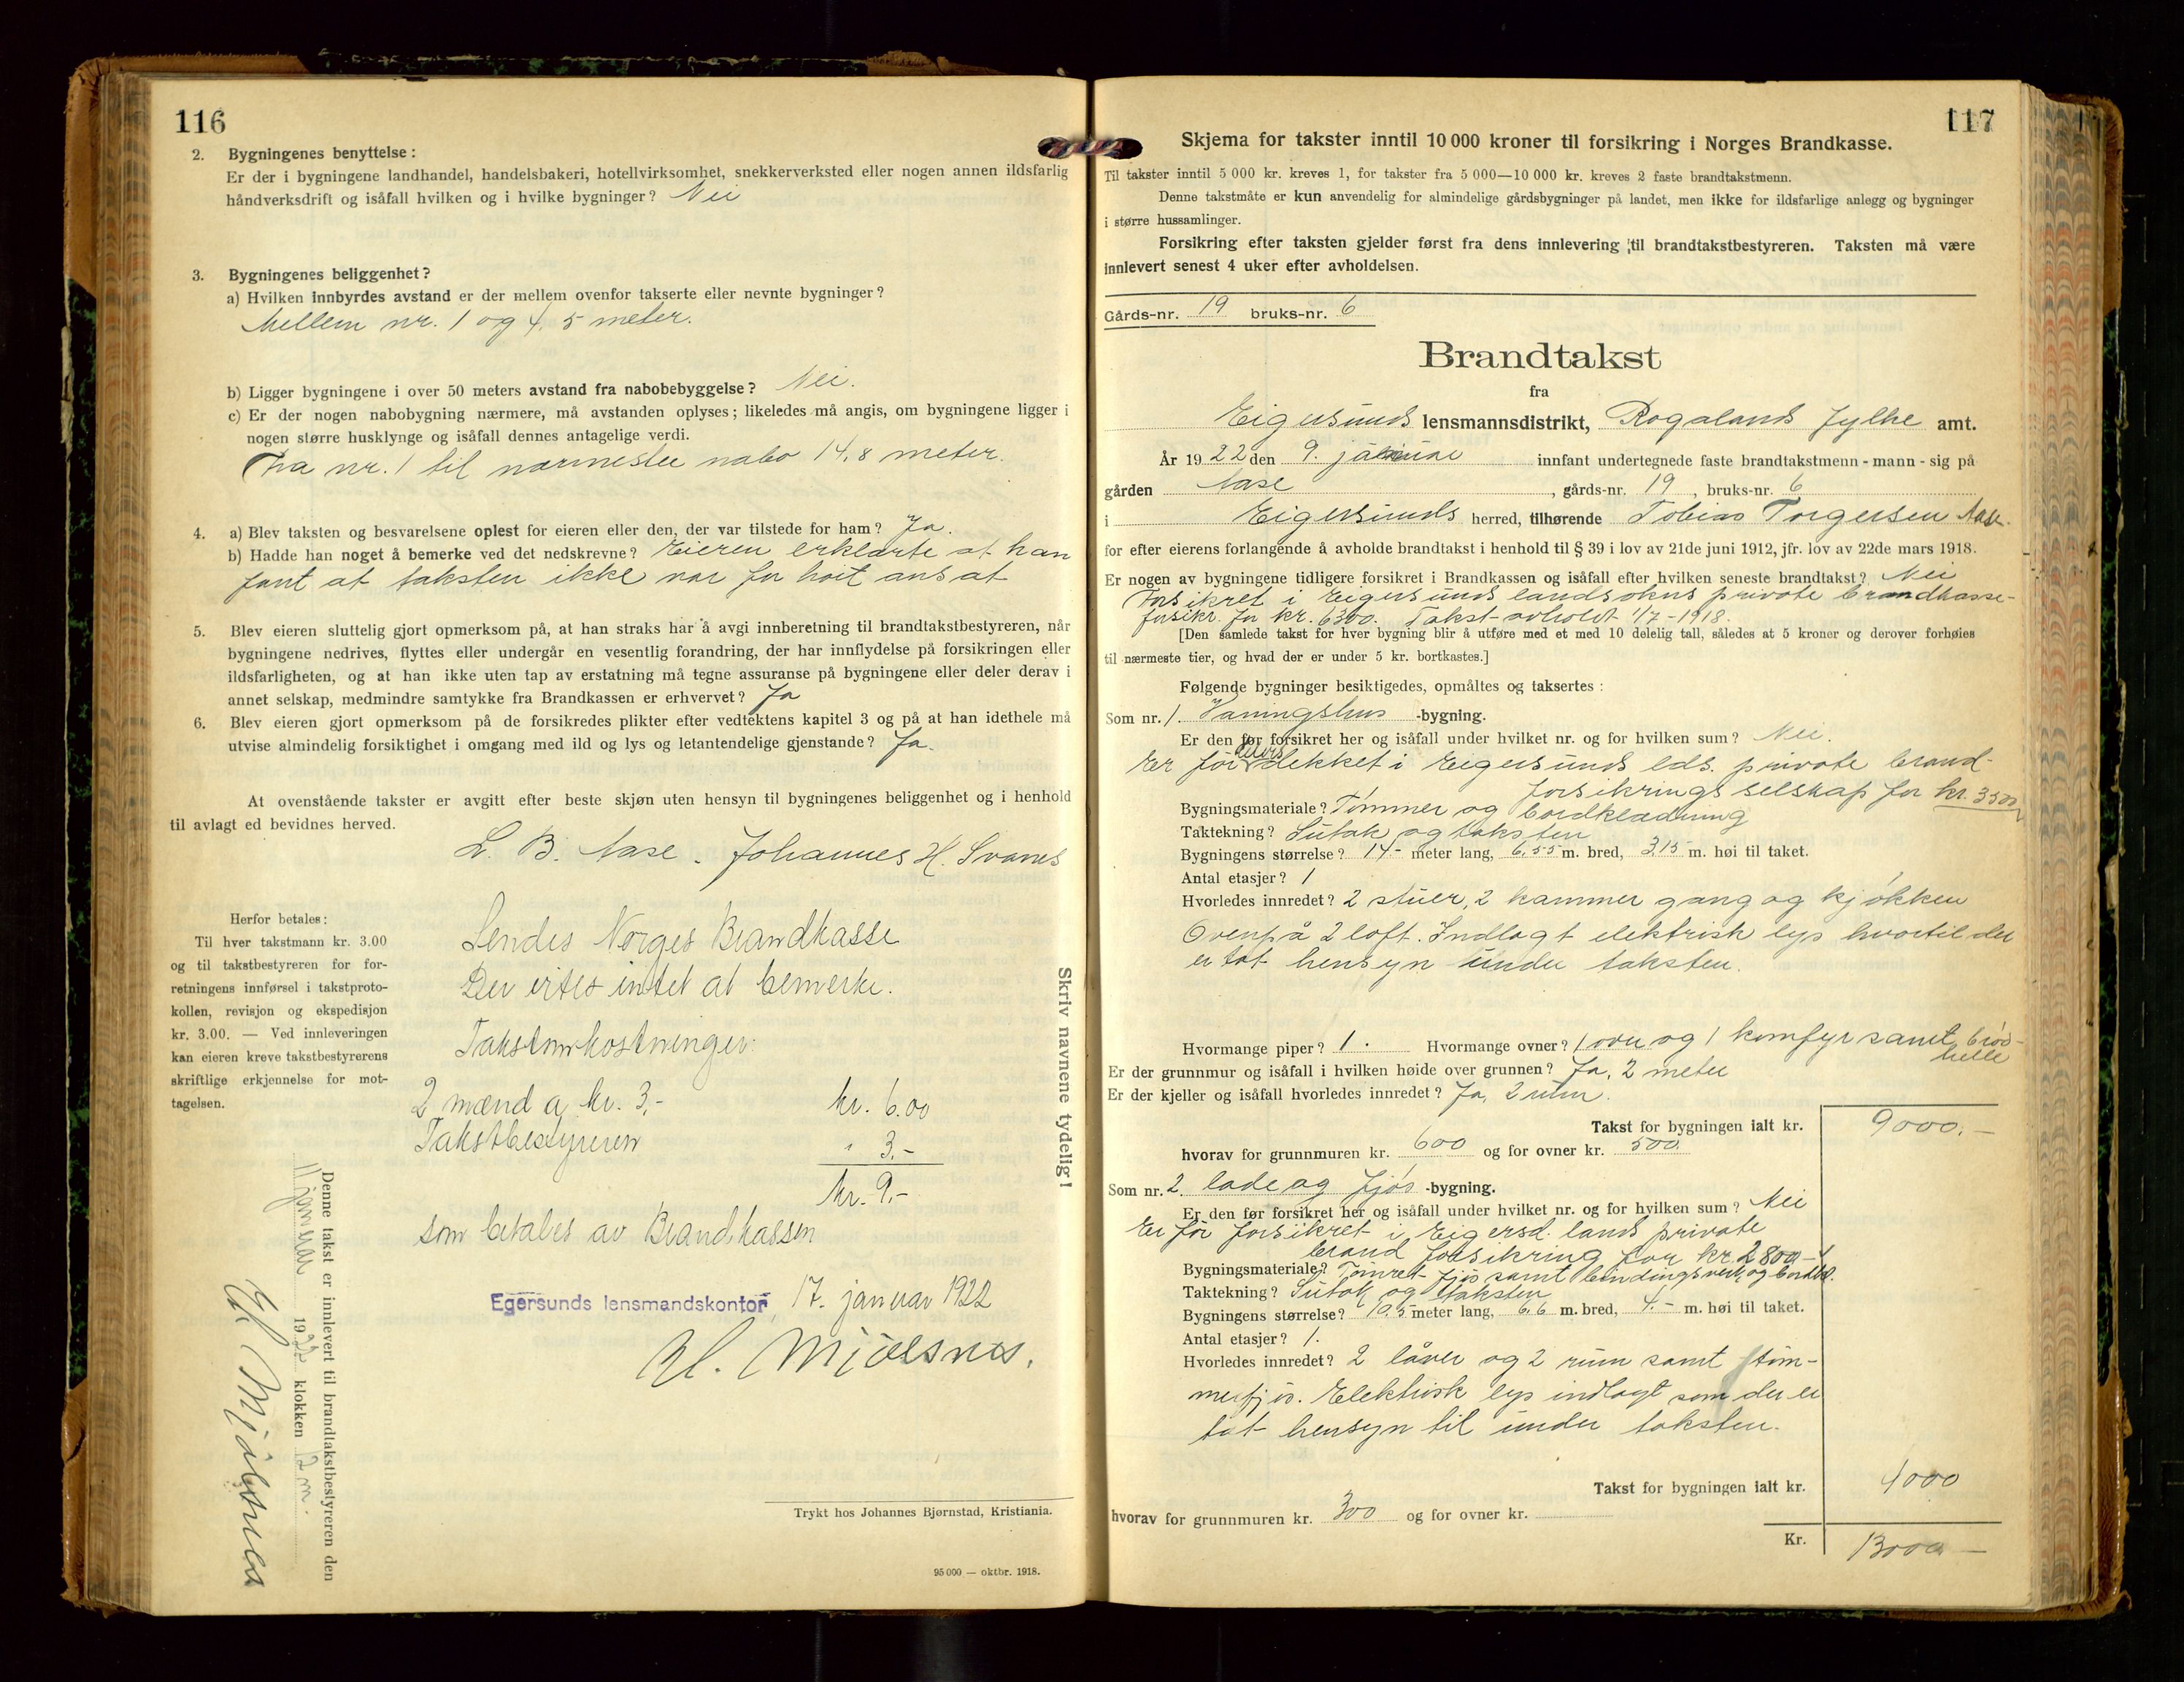 116
2. Bygningenes benyttelse :
Er der i bygningene landhandel, handelsbakeri, hotellvirksomhet, snekkerverksted eller nogen annen ildsfarlig
håndverksdrift og isåfall hvilken og i hvilke bygninger? Nei
3. Bygningenes beliggenhet?
a) Hvilken innbyrdes avstand er der mellem ovenfor takserte eller nevnte bygninger?
Mellem nr. 1 og 4. 5 meter.
b) Ligger bygningene i over 50 meters avstand fra nabobebyggelse? Nei.
c) Er der nogen nabobygning nærmere, må avstanden oplyses; likeledes må angis, om bygningene ligger i
nogen større husklynge og isåfall dennes antagelige verdi.
Fra nr. 1 til nærmeste nabo 14.8 meter.
4. a) Blev taksten og besvarelsene oplest for eieren eller den, der var tilstede for ham? Ja.
b) Hadde han noget å bemerke ved det nedskrevne? Eieren erklærte at han
fant at taksten ikke var for høit ansat
5. Blev eieren sluttelig gjort opmerksom på, at han straks har å avgi innberetning til brandtakstbestyreren, når
bygningene nedrives, flyttes eller undergår en vesentlig forandring, der har innflydelse på forsikringen eller
ildsfarligheten, og at han ikke uten tap av erstatning må tegne assuranse på bygningene eller deler derav i
annet selskap, medmindre samtykke fra Brandkassen er erhvervet? Ja
6. Blev eieren gjort opmerksom på de forsikredes plikter efter vedtektens kapitel 3 og på at han idethele må
utvise almindelig forsiktighet i omgang med ild og lys og letantendelige gjenstande? Ja.
At ovenstående takster er avgitt efter beste skjøn uten hensyn til bygningenes beliggenhet og i henhold
til avlagt ed bevidnes herved.
L. B. Aase. Johannes H. Svanes
Herfor betales:
Til hver takstmann kr. 3.00
og til takstbestyreren for for-
retningens innførsel i takstproto-
kollen, revisjon og ekspedisjon
kr. 3.00. — Ved innleveringen
kan eieren kreve takstbestyrerens
skriftlige erkjennelse for mot-
tagelsen.
Sendes Norges Brandkasse
Der vites intet at bemerke.
Takstomkostninger:
2 mænd a kr. 3,- kr. 6.00
Takstbestyreren " 3.-
kr. 9.-
som betales av Brandkassen
Egersunds lensmandskontor, 17. januar 1922
H. Mjølsnes.
Skriv navnene tydelig!
Denne takst er innlevert til brandtakstbestyreren den
11 januar 1922 klokken 12 m.
H. Mjølsnes
Trykt hos Johannes Bjørnstad, Kristiania.
95 000 — oktbr. 1918.
117
Skjema for takster inntil 10 000 kroner til forsikring i Norges Brandkasse.
Til takster inntil 5 000 kr. kreves 1, for takster fra 5 000—10 000 kr. kreves 2 faste brandtakstmenn.
Denne takstmåte er kun anvendelig for almindelige gårdsbygninger på landet, men ikke for ildsfarlige anlegg og bygninger
i større hussamlinger.
Forsikring efter taksten gjelder først fra dens innlevering til brandtakstbestyreren. Taksten må være
innlevert senest 4 uker efter avholdelsen.
Gårds-nr. 19 bruks-nr. 6
Brandtakst
fra
Eigersunds lensmannsdistrikt, Rogalands fylke amt.
År 1922 den 9. januar innfant undertegnede faste brandtakstmenn - mann - sig på
gården Aase, gårds-nr. 19, bruks-nr. 6
i Eigersunds herred, tilhørende Tobias Torgersen Aase.
for efter eierens forlangende å avholde brandtakst i henhold til § 39 i lov av 21de juni 1912, jfr. lov av 22de mars 1918.
Er nogen av bygningene tidligere forsikret i Brandkassen og isåfall efter hvilken seneste brandtakst? Nei
Forsikret i Eigersunds landsokns private brandkasse-
forsikr. for kr. 6300. Takst avholdt 1/7-1918.
[Den samlede takst for hver bygning blir å utføre med et med 10 delelig tall, således at 5 kroner og derover forhøies
til nærmeste tier, og hvad der er under 5 kr. bortkastes.]
Følgende bygninger besiktigedes, opmåltes og taksertes :
Som nr. 1. Vaningshus -bygning.
Er den før forsikret her og isåfall under hvilket nr. og for hvilken sum? Nei.
Er før delvis dekket i Eigersunds lds. private brand-
forsikrings selskap for kr. 3500
Bygningsmateriale? Tømmer og bordklædning
Taktekning? Sutak og taksten
Bygningens størrelse? 14.- meter lang, 6,55 m. bred, 3,15 m. høi til taket.
Antal etasjer? 1
Hvorledes innredet? 2 stuer, 2 kammer gang og kjøkken
Ovenpå 2 loft. Indlagt elektrisk lys hvortil der
er tat hensyn under taksten.
Hvormange piper? 1. Hvormange ovner? 1 ovn og 1 komfyr samt brød-
helle
Er der grunnmur og isåfall i hvilken høide over grunnen? Ja, 2 meter
Er der kjeller og isåfall hvorledes innredet? Ja, 2 rum.
Takst for bygningen ialt kr. 9000.—
hvorav for grunnmuren kr. 600 og for ovner kr. 500.
Som nr. 2. lade og fjøs -bygning.
Er den før forsikret her og isåfall under hvilket nr. og for hvilken sum? Nei
Er før forsikret i Eigersd. lands private
brand forsikring for kr. 2800-
Bygningsmateriale? Tømret fjøs samt bindingsverk og bordkl.
Taktekning? Sutak og taksten
Bygningens størrelse? 19,5 meter lang, 6,6 m. bred, 4.- m. høi til taket.
Antal etasjer? 1.
Hvorledes innredet? 2 låver og 2 rum samt tøm-
merfjøs. Elektrisk lys indlagt som der er
tat hensyn til under taksten.
Takst for bygningen ialt kr. 4000
hvorav for grunnmuren kr. 300 og for ovner kr.
Kr. 13000 —